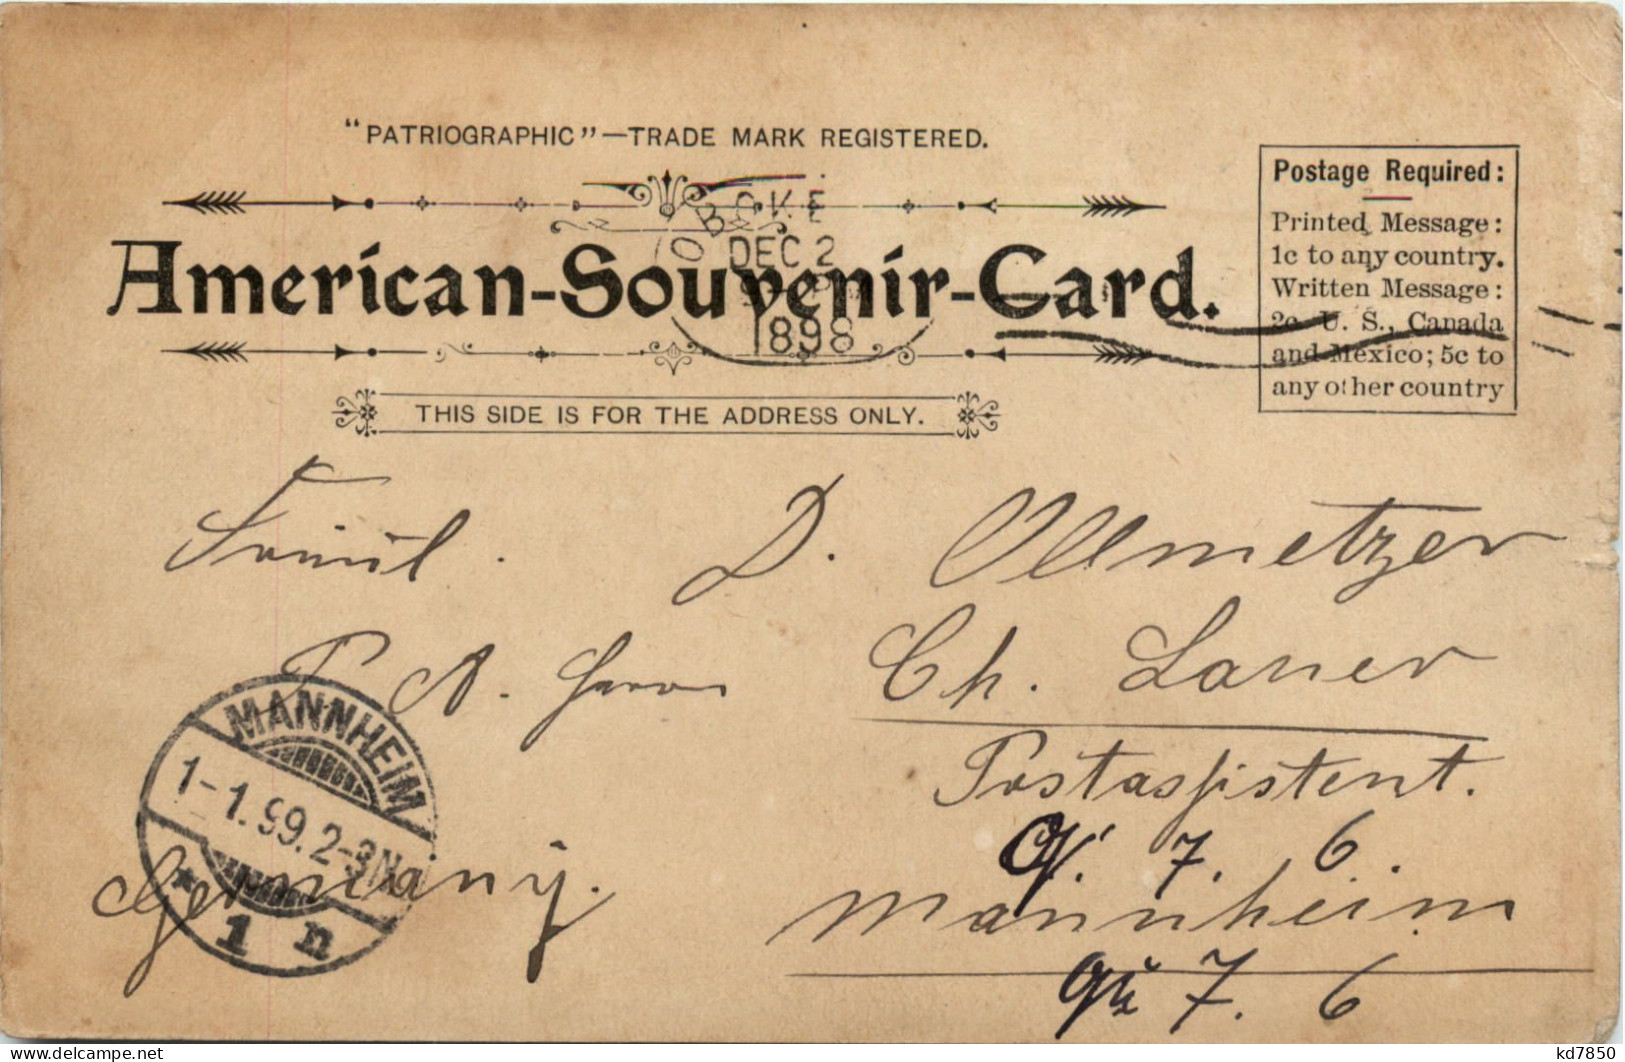 "PATRIOGRAPHIC"—TRADE MARK REGISTERED.
American-Souvenir-Card.
THIS SIDE IS FOR THE ADDRESS ONLY.
Postage Required:
Printed Message:
1c to any country.
Written Message:
2c U. S., Canada
and Mexico; 5c to
any other country
DEC 2
1898
D. Ollmetzer
Ch. Lauer
Postassistent.
7. 6.
Mannheim
7. 6
Germany.
MANNHEIM
1-1.99.2-3N
* 1 n
delcampe.net
kd7850